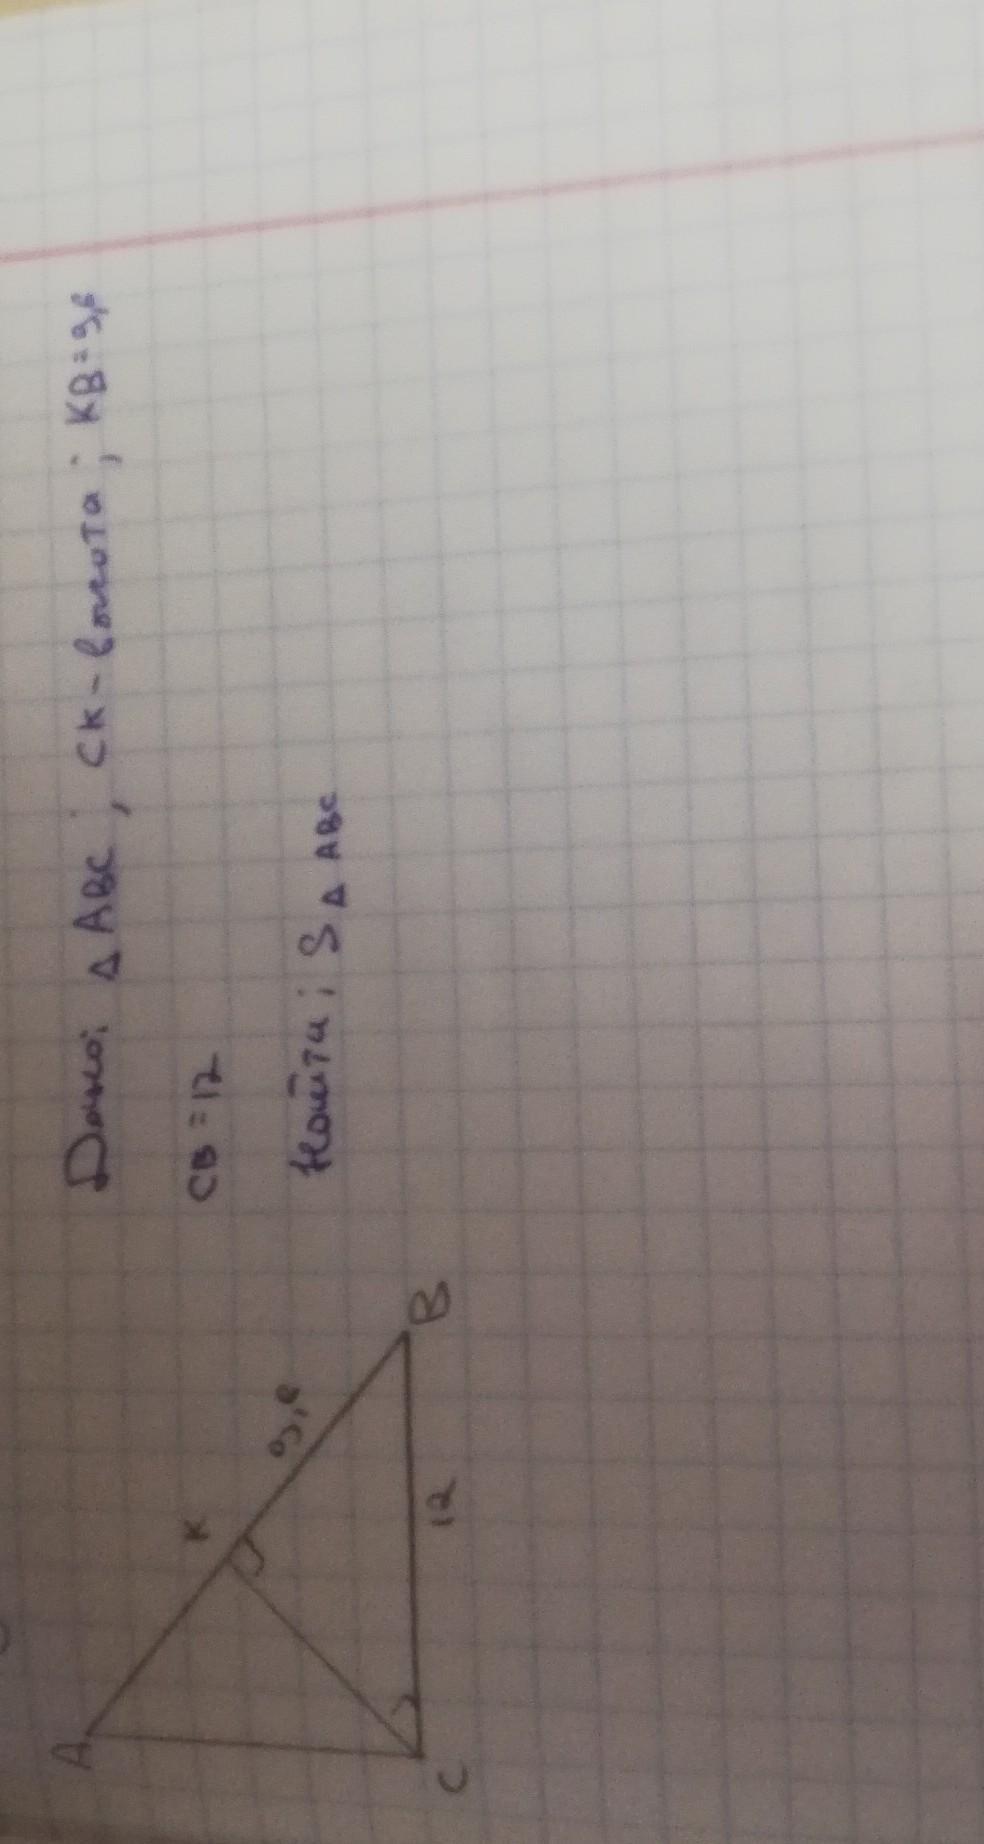 Дано: △ ABC; CK - высота; KB = 9,6
CB = 12
Найти: S △ ABC
A
K
9,6
B
12
C